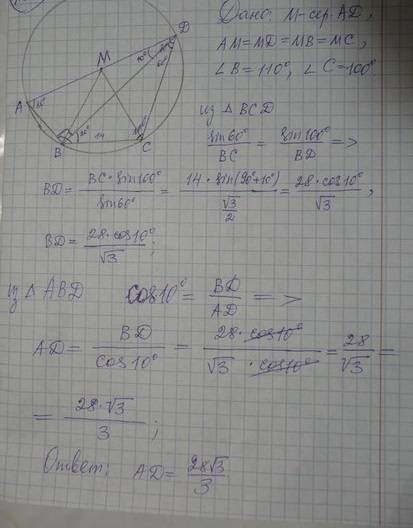 Дано: M-сер. AD,
AM=MD=MB=MC,
∠B=110°, ∠C=100°
D
M
10°
60°
A
80°
20°
14
B
C
из △BCD
sin60°/BC = sin100°/BD =>
BD = BC·sin100°/sin60° = 14·sin(90°+10°)/(√3/2) = 28·cos10°/√3,
BD = 28·cos10°/√3;
из △ABD cos10° = BD/AD =>
AD = BD/cos10° = 28·cos10°/(√3·cos10°) = 28/√3 =
= 28·√3/3;
Ответ: AD = 28√3/3